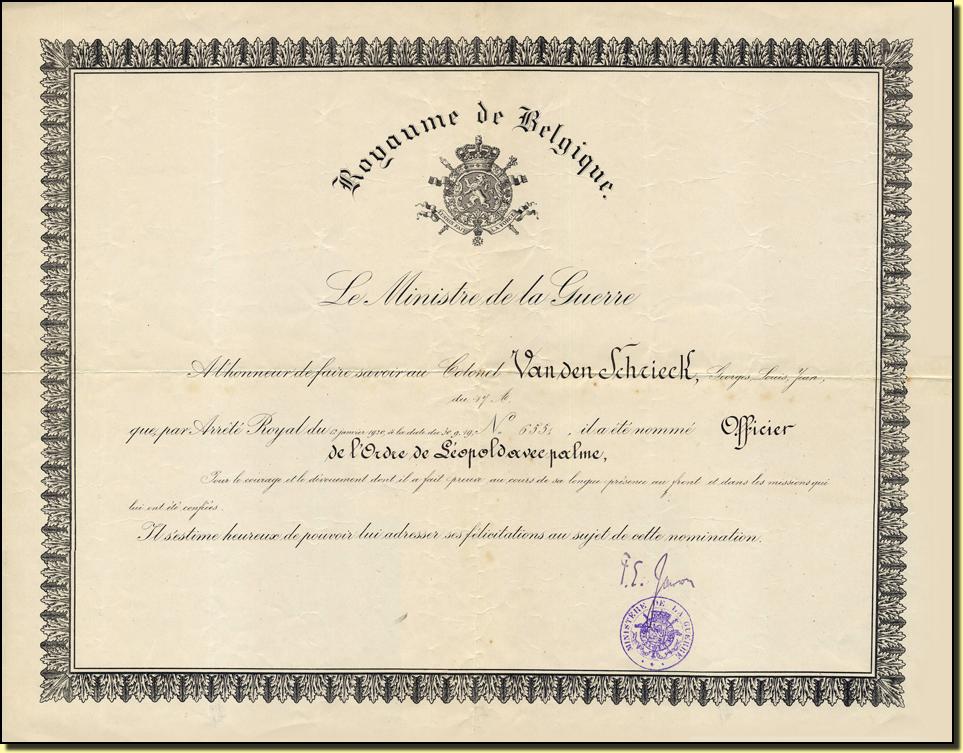 Royaume de Belgique.
L'UNION FAIT LA FORCE
Le Ministre de la Guerre
A l'honneur de faire savoir au Colonel Van den Schrieck, Georges, Louis, Jean,
du 17 A
que, par Arrêté Royal du janvier 1920, à la date du 30.9.19, Nº 6551, il a été nommé Officier
de l'Ordre de Léopold avec palme,
Pour le courage et le dévouement dont il a fait preuve au cours de sa longue présence au front et dans les missions qui
lui ont été confiées.
Il s'estime heureux de pouvoir lui adresser ses félicitations au sujet de cette nomination.
MINISTÈRE DE LA GUERRE